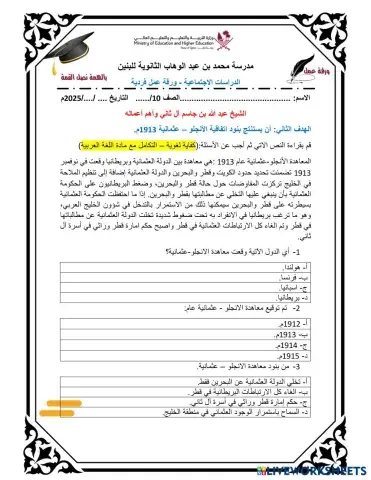 وزارة التربية والتعليم والتعليم العالي
Ministry of Education and Higher Education
مدرسة محمد بن عبد الوهاب الثانوية للبنين
ورقة عمل
بالهمة نصل القمة
الدراسات الاجتماعية - ورقة عمل فردية
الاسم: ........................................الصف 10/...... التاريخ .... /..../2025م
الشيخ عبد الله بن جاسم آل ثاني وأهم أعماله
الهدف الثاني: أن يستنتج بنود اتفاقية الانجلو – عثمانية 1913م.
قم بقراءة النص الاتي ثم أجب عن الأسئلة:(كفاية لغوية – التكامل مع مادة اللغة العربية)
المعاهدة الأنجلو-عثمانية عام 1913 :هي معاهدة بين الدولة العثمانية وبريطانيا وقعت في نوفمبر
1913 تضمنت تحديد حدود الكويت وقطر والبحرين والدولة العثمانية إضافة إلى تنظيم الملاحة
في الخليج تركزت المفاوضات حول حالة قطر والبحرين، وضغط البريطانيون على الحكومة
العثمانية بأن ينبغي عليها التخلي عن مطالبتها بقطر والبحرين. إذا ما احتفظت الحكومة العثمانية
بسيطرته على قطر والبحرين سيمكنها ذلك من الاستمرار بالتدخل في شؤون الخليج العربي،
وهو ما ترغب بريطانيا في الانفراد به تحت ضغوط شديدة تخلت الدولة العثمانية عن مطالباتها
في قطر وتم الغاء كل الارتباطات العثمانية في قطر واصبح حكم امارة قطر وراثي في أسرة آل
ثاني.
1- أي الدول الآتية وقعت معاهدة الانجلو-عثمانية؟
أ- هولندا.
ب- فرنسا.
ج- اسبانيا.
د- بريطانيا.
2- تم توقيع معاهدة الانجلو - عثمانية عام:
أ- 1912م.
ب- 1913م.
ج- 1914م.
د- 1915م.
3- من بنود معاهدة الانجلو – عثمانية.
أ- تخلي الدولة العثمانية عن البحرين فقط.
ب- الغاء كل الارتباطات البريطانية في قطر.
ج- حكم إمارة قطر وراثي في أسرة آل ثاني.
د- السماح باستمرار الوجود العثماني في منطقة الخليج.
LIVEWORKSHEETS